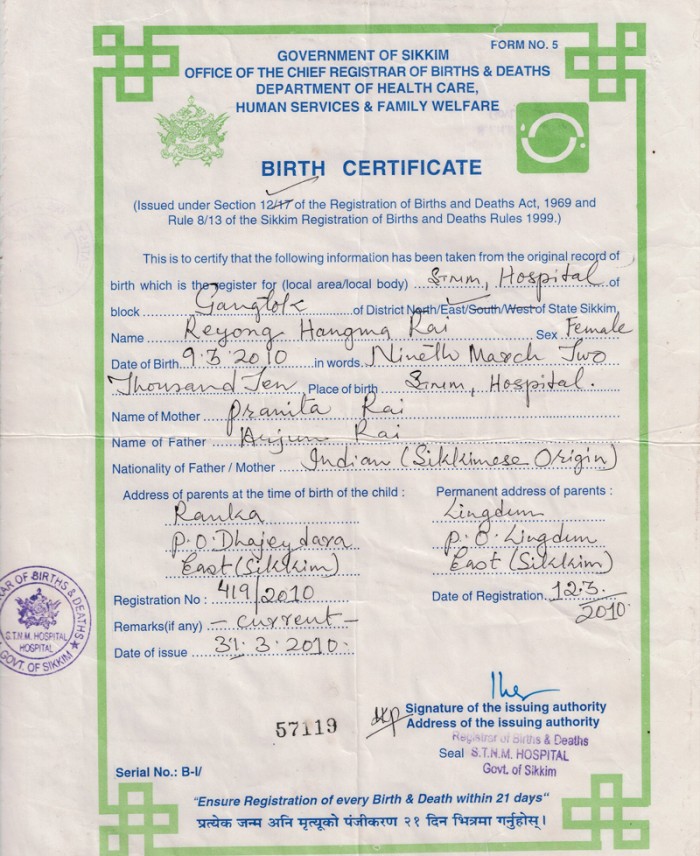 FORM NO. 5
GOVERNMENT OF SIKKIM
OFFICE OF THE CHIEF REGISTRAR OF BIRTHS & DEATHS
DEPARTMENT OF HEALTH CARE,
HUMAN SERVICES & FAMILY WELFARE
BIRTH CERTIFICATE
(Issued under Section 12/17 of the Registration of Births and Deaths Act, 1969 and
Rule 8/13 of the Sikkim Registration of Births and Deaths Rules 1999.)
This is to certify that the following information has been taken from the original record of
birth which is the register for (local area/local body) STNM, Hospital of
block Gangtok of District North/East/South/West of State Sikkim
Name Reyong Hangma Rai Sex Female
Date of Birth 9.3.2010 in words Nineth March Two
Thousand Ten Place of birth STNM, Hospital.
Name of Mother Pranita Rai
Name of Father Arjun Rai
Nationality of Father / Mother Indian (Sikkimese Origin)
Address of parents at the time of birth of the child : Permanent address of parents :
Ranka Lingdum
P.O. Dhajeydara P.O. Lingdum
East (Sikkim) East (Sikkim)
Registration No : 419/2010 Date of Registration 12.3.2010
Remarks(if any) - current -
Date of issue 31.3.2010.
REGISTRAR OF BIRTHS & DEATHS
S.T.N.M. HOSPITAL
HOSPITAL
GOVT. OF SIKKIM
Signature of the issuing authority
57119 Address of the issuing authority
Registrar of Births & Deaths
Seal S.T.N.M. HOSPITAL
Govt. of Sikkim
Serial No.: B-I/
"Ensure Registration of every Birth & Death within 21 days"
प्रत्येक जन्म अनि मृत्यूको पंजीकरण २१ दिन भित्रमा गर्नुहोस्।